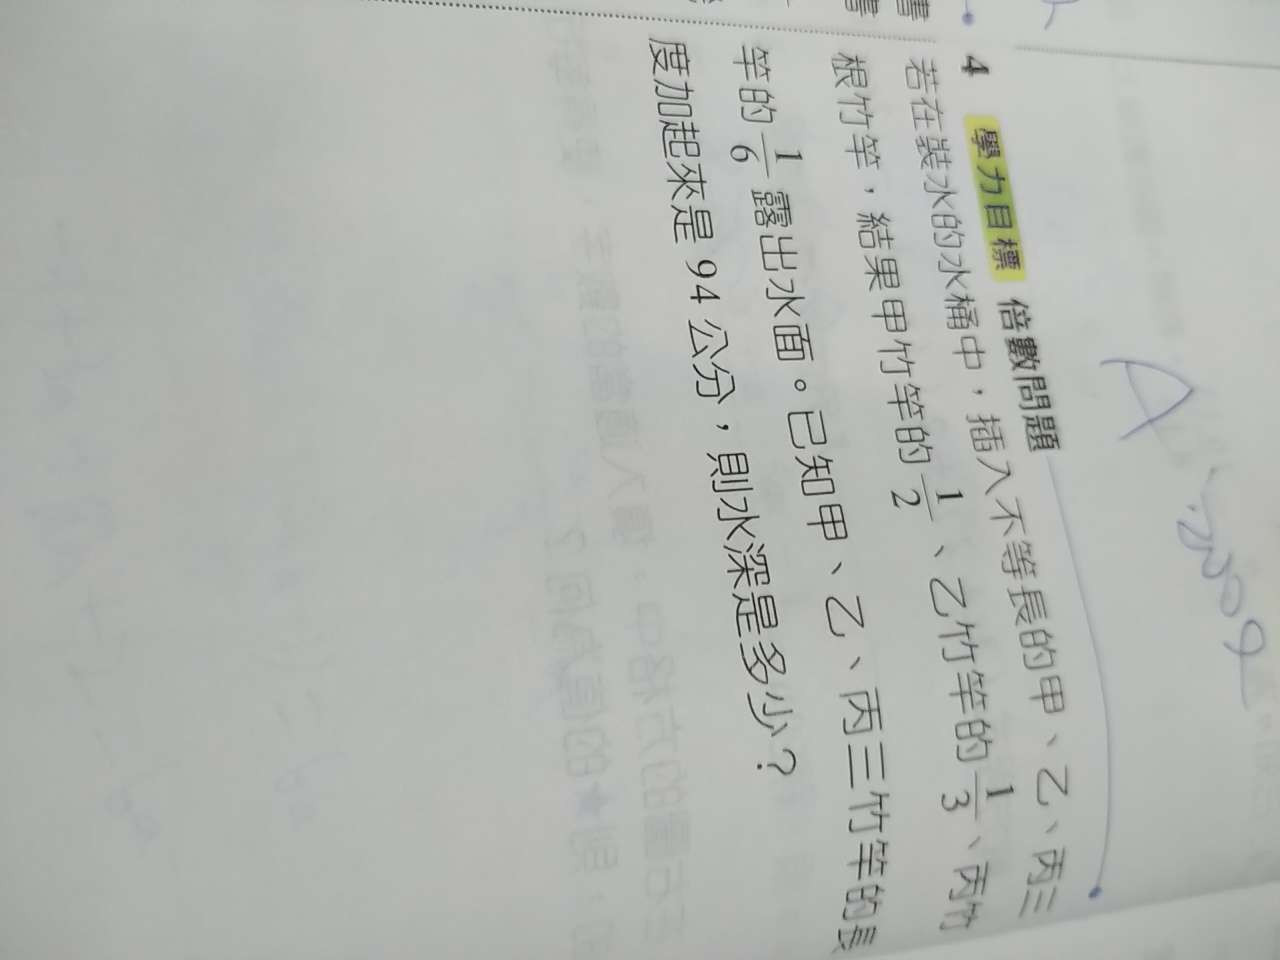 書
4 學力目標 倍數問題
若在裝水的水桶中，插入不等長的甲、乙、丙三
根竹竿，結果甲竹竿的 1/2 、乙竹竿的 1/3 、丙竹
竿的 1/6 露出水面。已知甲、乙、丙三竹竿的長
度加起來是 94 公分，則水深是多少？